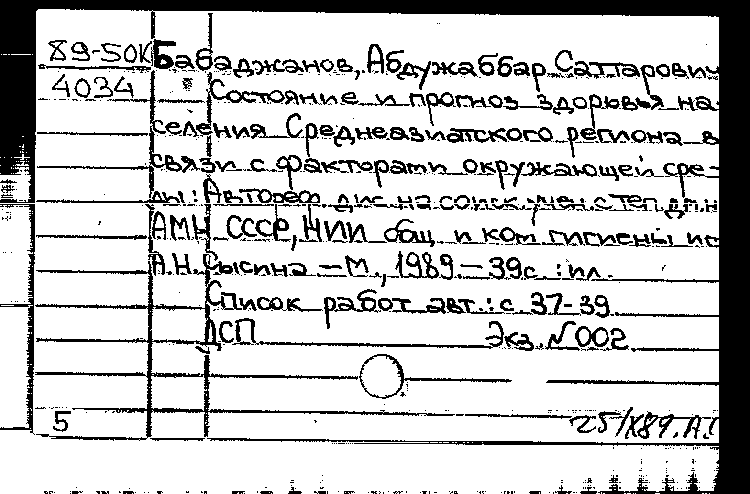 89-50К Бабаджанов, Абдужаббар Саттарович
4034 Состояние и прогноз здоровья на-
селения Среднеазиатского региона в
связи с факторами окружающей сре-
ды: Автореф. дис. на соиск. учен. степ. д.м.н
АМН СССР, НИИ общ и ком гигиены им
А.Н. Сысина — М., 1989. — 39с. : ил.
Список работ авт.: с. 37-39
ДСП Экз. №002
5 25/X89. А.